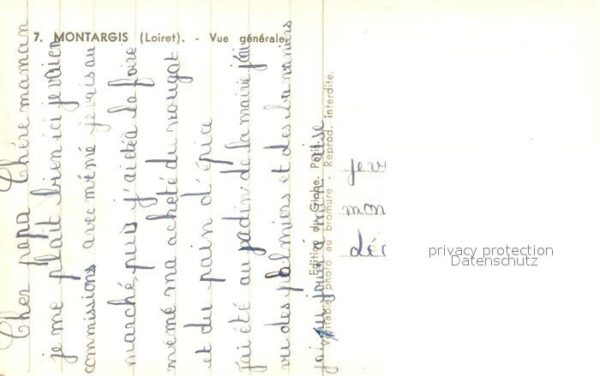 7. MONTARGIS (Loiret). - Vue générale.
Cher papa Chère maman
je me plait bien ici je vaien
commissions avec mémé je vais au
marché, puis j'ai été a la foire
mémé m'a acheté du nougat
et du pain d'épice
j'ai été au jadin de la mairie j'ai
vu des palmiers et des bananiers
j'ai pu
Edition du Globe, Paris
Véritable photo au bromure - Reprod. interdite.
jer
mon
dér
privacy protection
Datenschutz